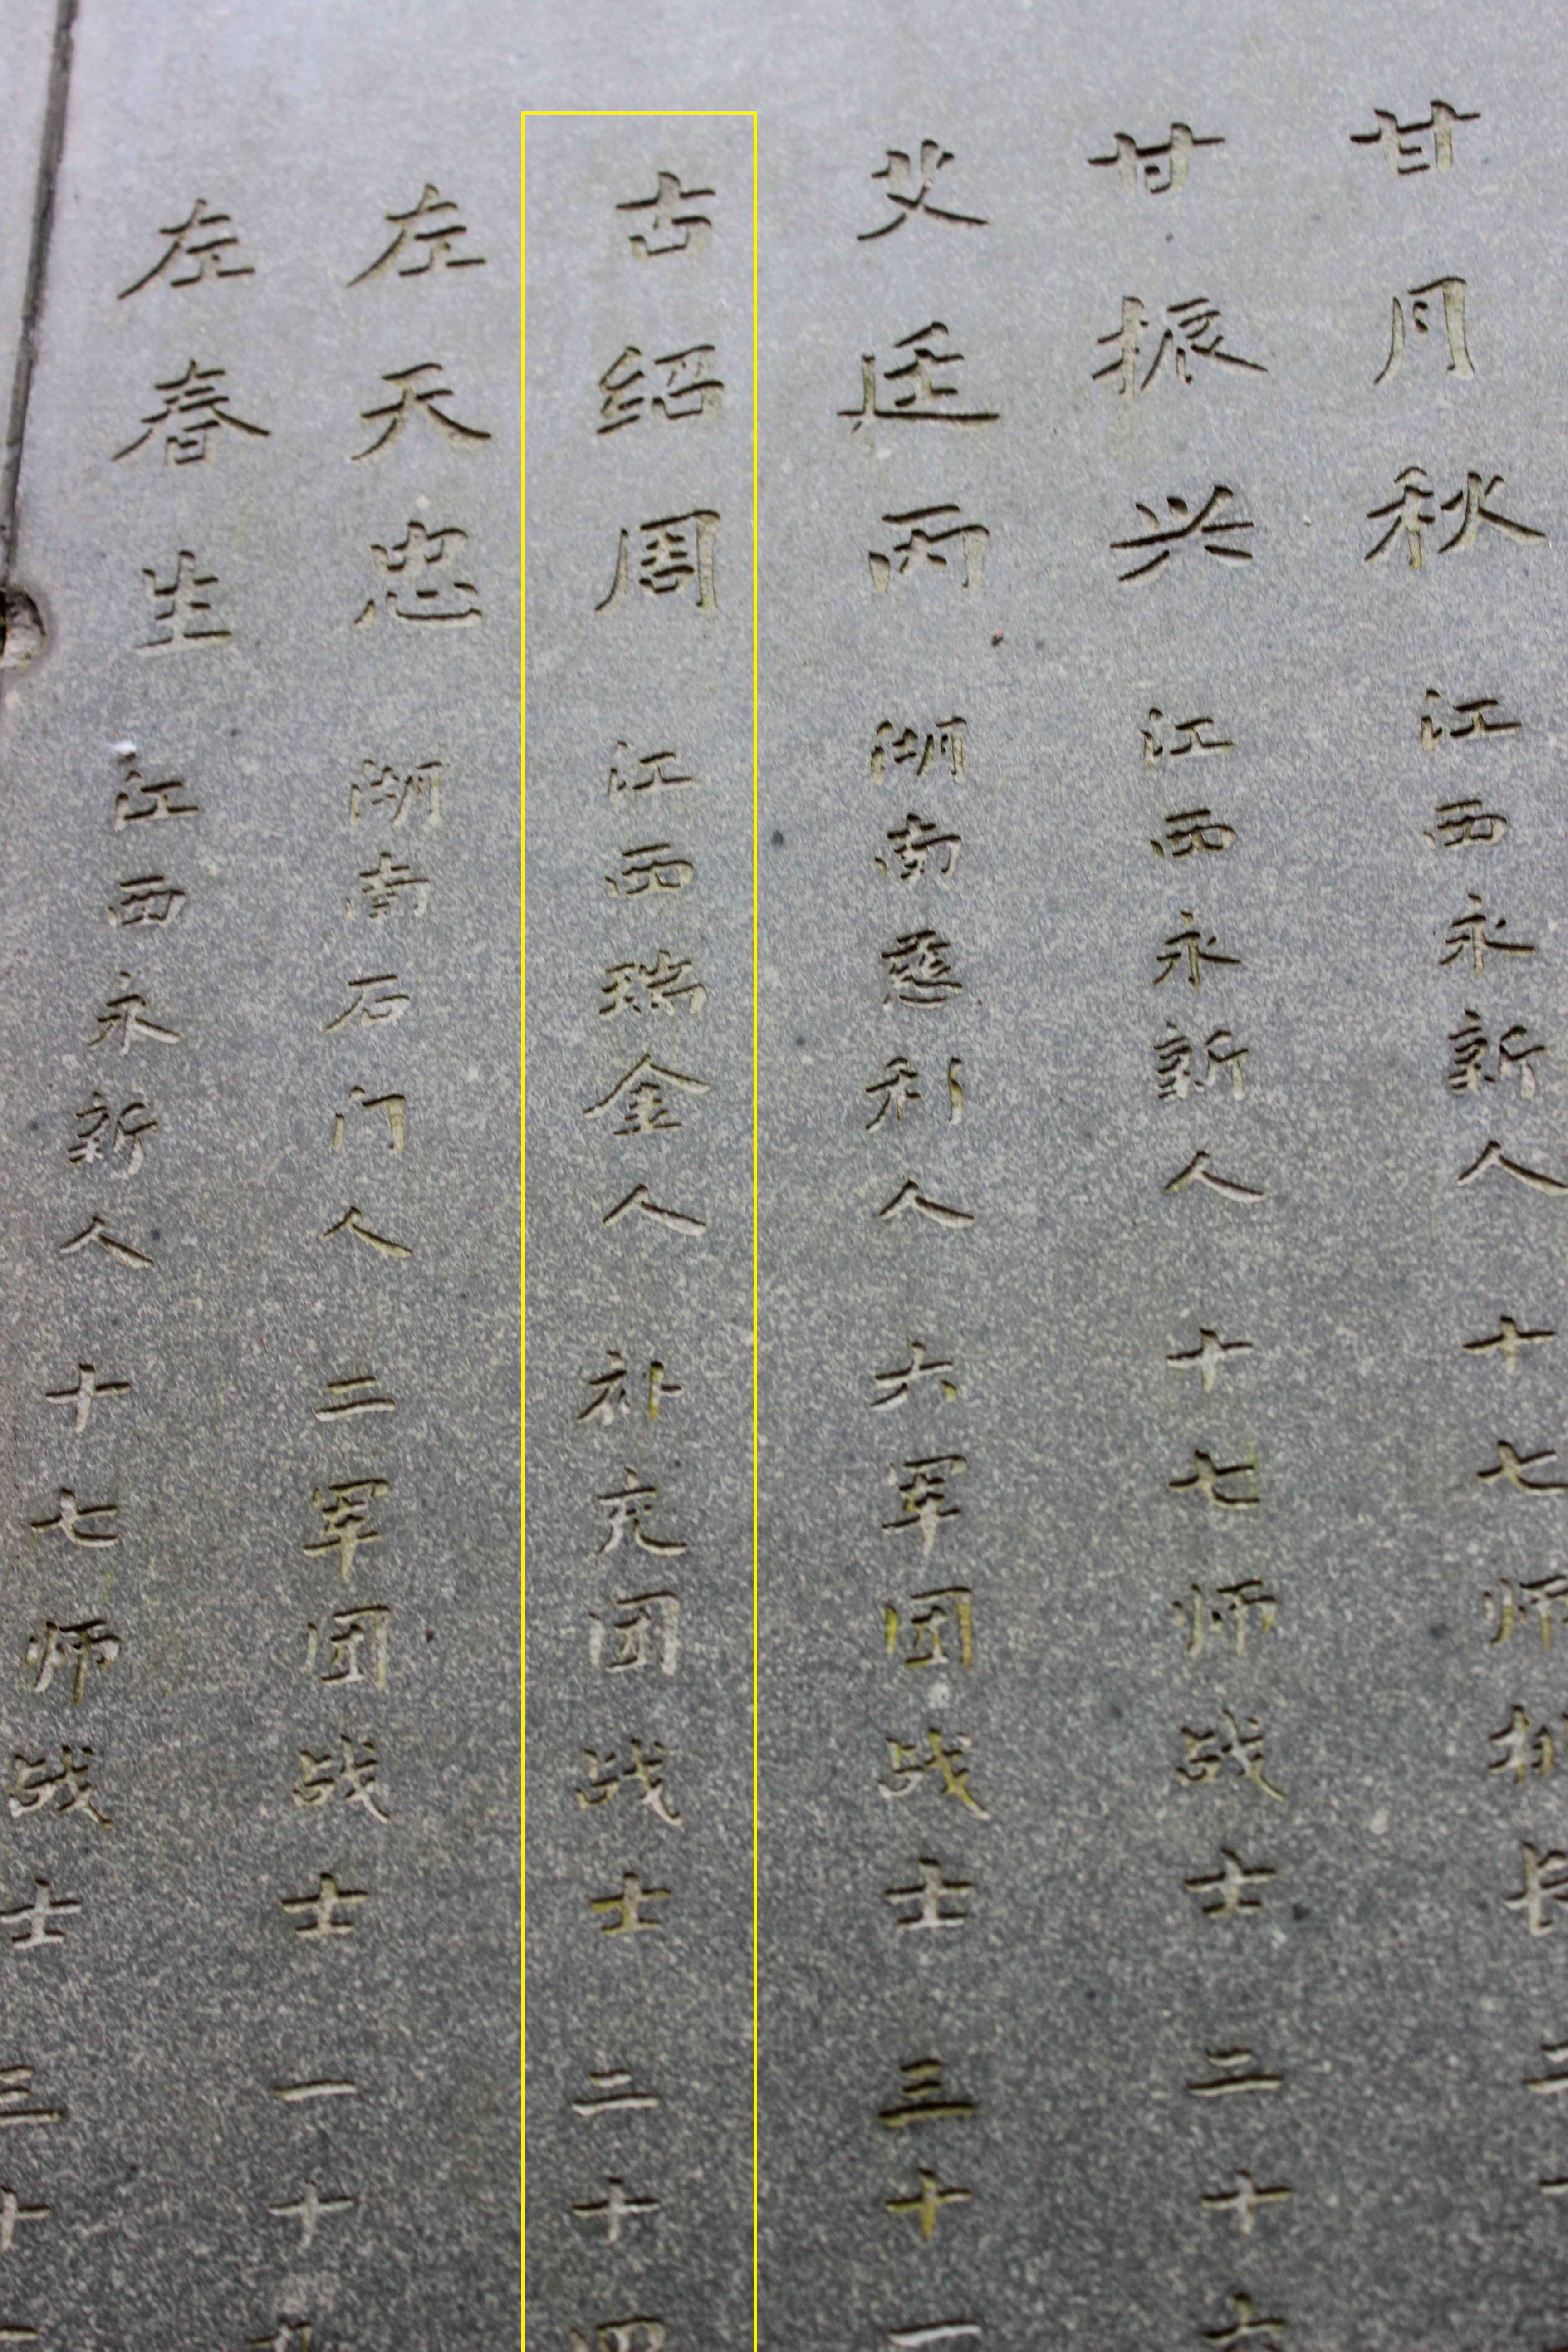 甘月秋 江西永新人 十七师 长
甘振兴 江西永新人 十七师战士 二十
艾廷丙 湖南慈利人 六军团战士 三十一
古绍周 江西瑞金人 补充团战士 二十四
左天忠 湖南石门人 二军团战士 一十九
左春生 江西永新人 十七师战士 三十